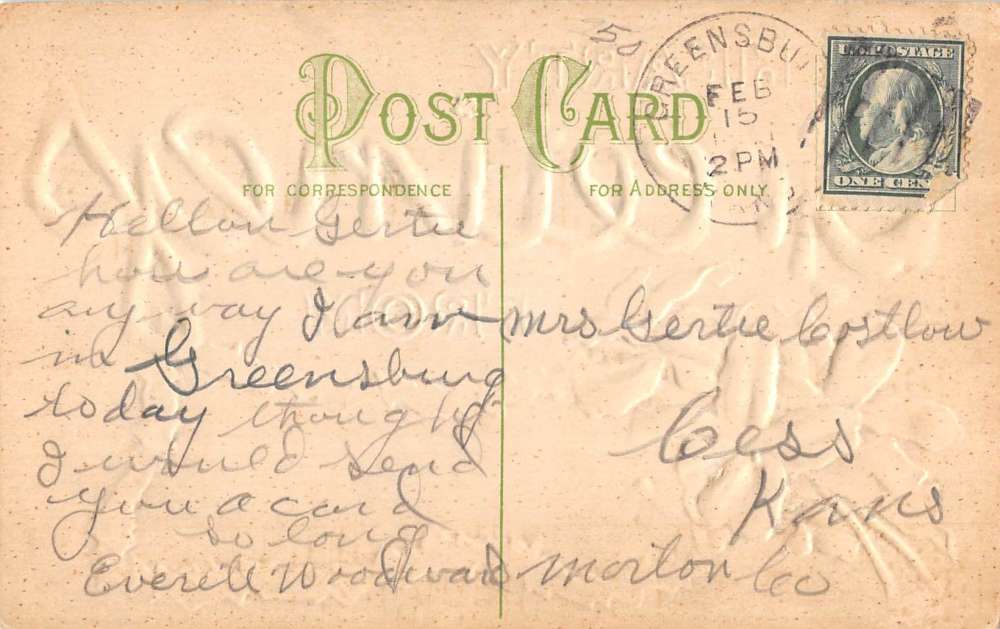 50
GREENSBU
FEB
15
2 PM
U.S. POSTAGE
ONE CEN
POST CARD
FOR CORRESPONDENCE
FOR ADDRESS ONLY
Hellow Gertie
how are you
any way I am
in Greensburg
today thought
I would send
you a card
so long
Everett Woodward
Mrs Gertie Costlow
Cess
Kans
Morton Co